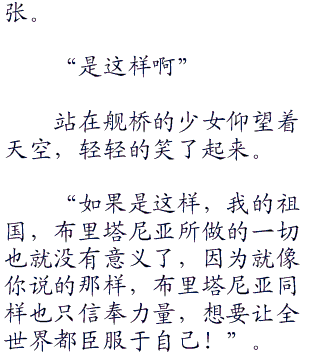 张。
“是这样啊”
站在舰桥的少女仰望着
天空，轻轻的笑了起来。
“如果是这样，我的祖
国，布里塔尼亚所做的一切
也就没有意义了，因为就像
你说的那样，布里塔尼亚同
样也只信奉力量，想要让全
世界都臣服于自己！”。